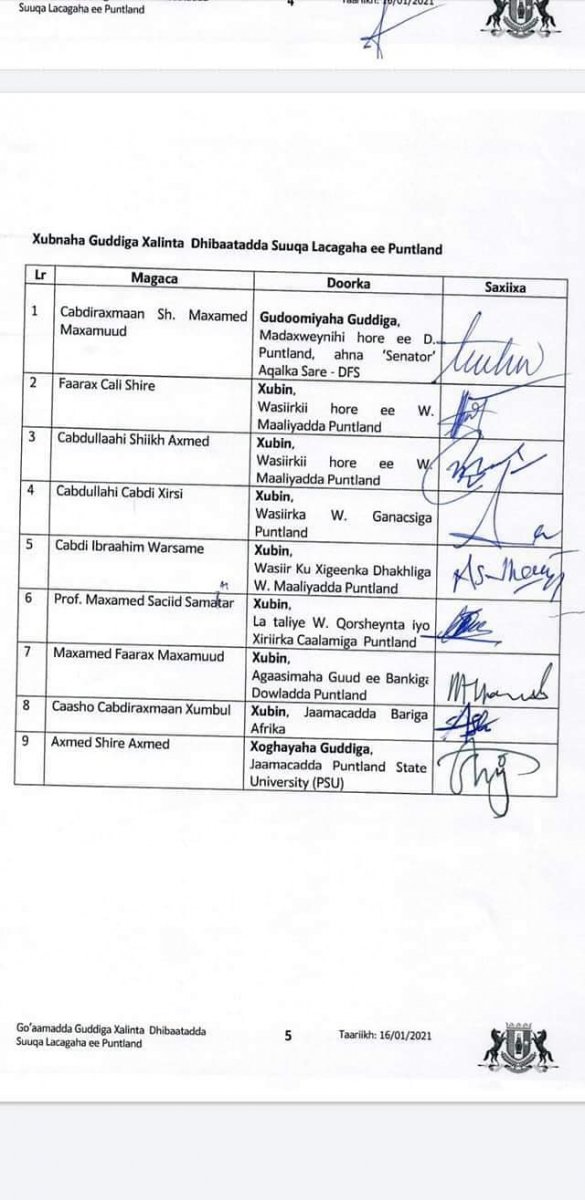 Suuqa Lacagaha ee Puntland
4
Taariikh: 16/01/2021
Xubnaha Guddiga Xalinta Dhibaatadda Suuqa Lacagaha ee Puntland
Lr Magaca Doorka Saxiixa
1 Cabdiraxmaan Sh. Maxamed Gudoomiyaha Guddiga,
Maxamuud Madaxweynihi hore ee D.
Puntland, ahna 'Senator'
Aqalka Sare - DFS
2 Faarax Cali Shire Xubin,
Wasiirkii hore ee W.
Maaliyadda Puntland
3 Cabdullaahi Shiikh Axmed Xubin,
Wasiirkii hore ee W.
Maaliyadda Puntland
4 Cabdullahi Cabdi Xirsi Xubin,
Wasiirka W. Ganacsiga
Puntland
5 Cabdi Ibraahim Warsame Xubin,
Wasiir Ku Xigeenka Dhakhliga
W. Maaliyadda Puntland
6 Prof. Maxamed Saciid Samatar Xubin,
La taliye W. Qorsheynta iyo
Xiriirka Caalamiga Puntland
7 Maxamed Faarax Maxamuud Xubin,
Agaasimaha Guud ee Bankiga
Dowladda Puntland
8 Caasho Cabdiraxmaan Xumbul Xubin, Jaamacadda Bariga
Afrika
9 Axmed Shire Axmed Xoghayaha Guddiga,
Jaamacadda Puntland State
University (PSU)
Go'aamadda Guddiga Xalinta Dhibaatadda
Suuqa Lacagaha ee Puntland
5
Taariikh: 16/01/2021